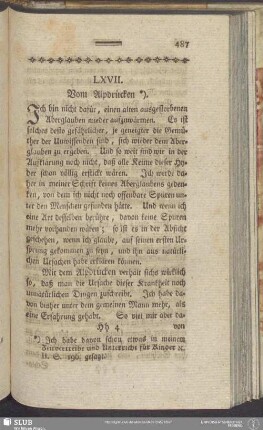 487
LXVII.
Vom Alpdrücken *).
Ich bin nicht dafür, einen alten ausgestorbenen
Aberglauben wieder aufzuwärmen. Es ist
solches desto gefährlicher, je geneigter die Gemü-
ther der Unwissenden sind, sich wieder dem Aber-
glauben zu ergeben. Und so weit sind wir in der
Aufklärung noch nicht, daß alle Keime dieser Hy-
der schon völlig erstickt wären. Ich werde da-
her in meiner Schrift keines Aberglaubens geden-
ken, von dem ich nicht noch offenbare Spuren un-
ter den Menschen gefunden hätte. Und wenn ich
eine Art desselben berühre, davon keine Spuren
mehr vorhanden wären; so ist es in der Absicht
geschehen, wenn ich glaube, auf seinen ersten Ur-
sprung gekommen zu seyn, und ihn aus natürli-
chen Ursachen habe erklären können.
Mit dem Alpdrücken verhält sichs wirklich
so, daß man die Ursache dieser Krankheit noch
unnatürlichen Dingen zuschreibt. Ich habe da-
von bisher unter dem gemeinen Mann mehr, als
eine Erfahrung gehabt. So viel mir aber da-
Hh 4 von
*) Ich habe davon schon etwas in meinem
Zeitvertreibe und Unterricht für Kinder ꝛc.
II. S. gesagt.
SLUB